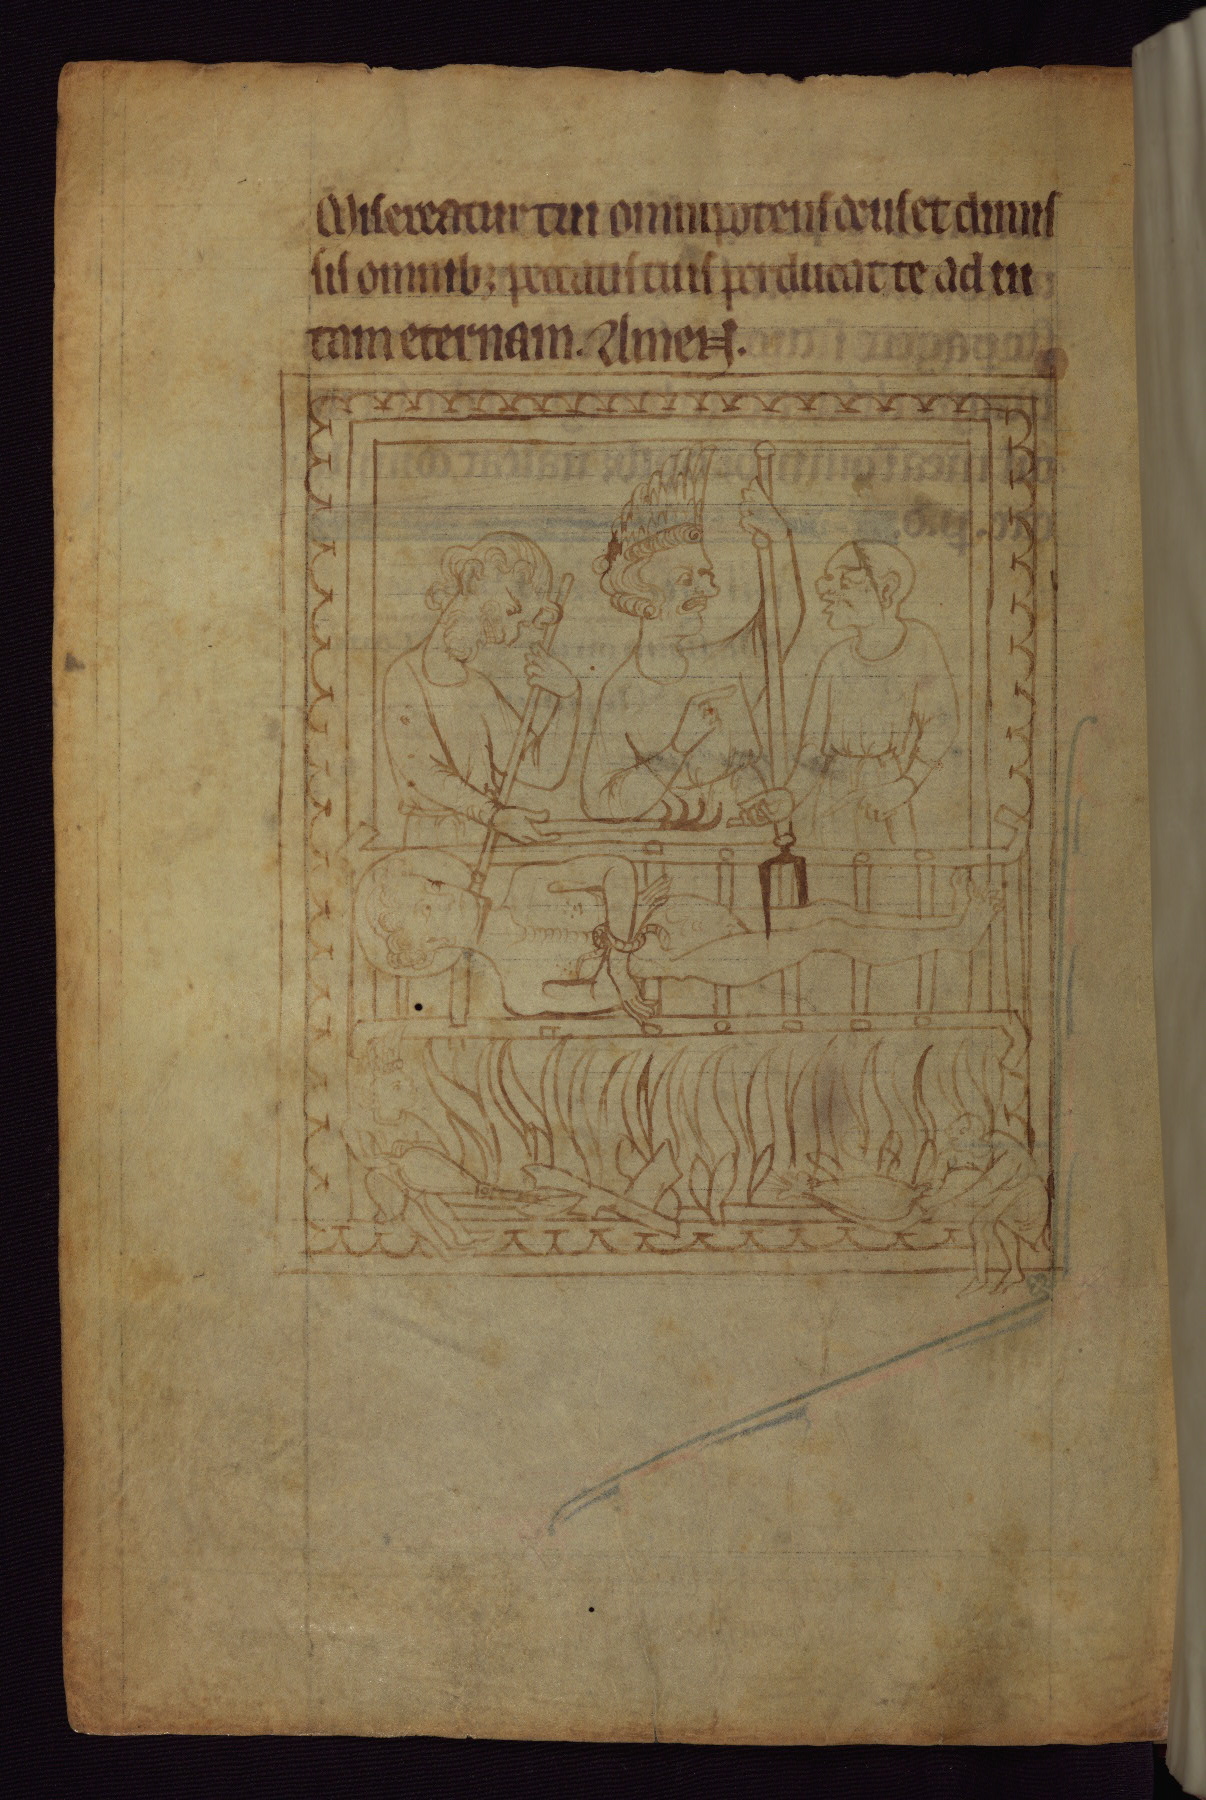 Misereatur tui omnipotens deus et dimis
sis omnib; peccatis tuis perducat te ad ui
tam eternam. Amen.